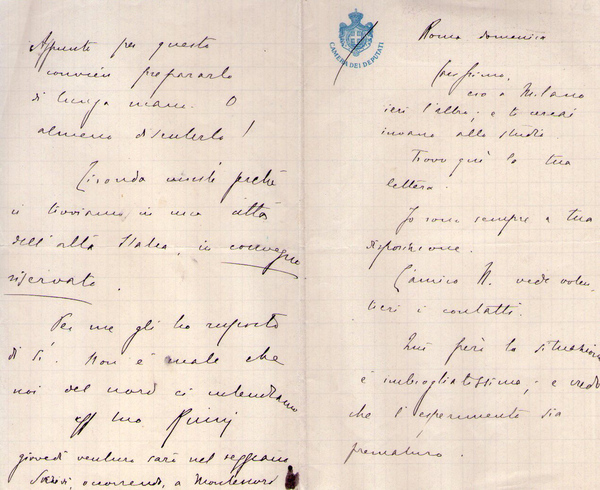 CAMERA DEI DEPUTATI
Roma domenica
ero a Milano
ieri l'altro; e ti cercai
invano allo studio
Trovo quì la tua
lettera.
Io sono sempre a tua
disposizione.
L'amico N. vede volen-
tieri i contatti.
Quì però la situazione
è imbrogliatissima; e credo
che l'esperimento sia
prematuro.
Appunto per questo
convien prepararlo
di lunga mano. O
almeno discuterlo!
insiste perchè
ci troviamo in una città
dell'alta Italia, in convegno
riservato.
Per me gli ho risposto
di Sì. Non è male che
noi del nord ci intendiamo
aff tuo Ruini
giovedì venturo sarò nel reggiano
occorrendo, a